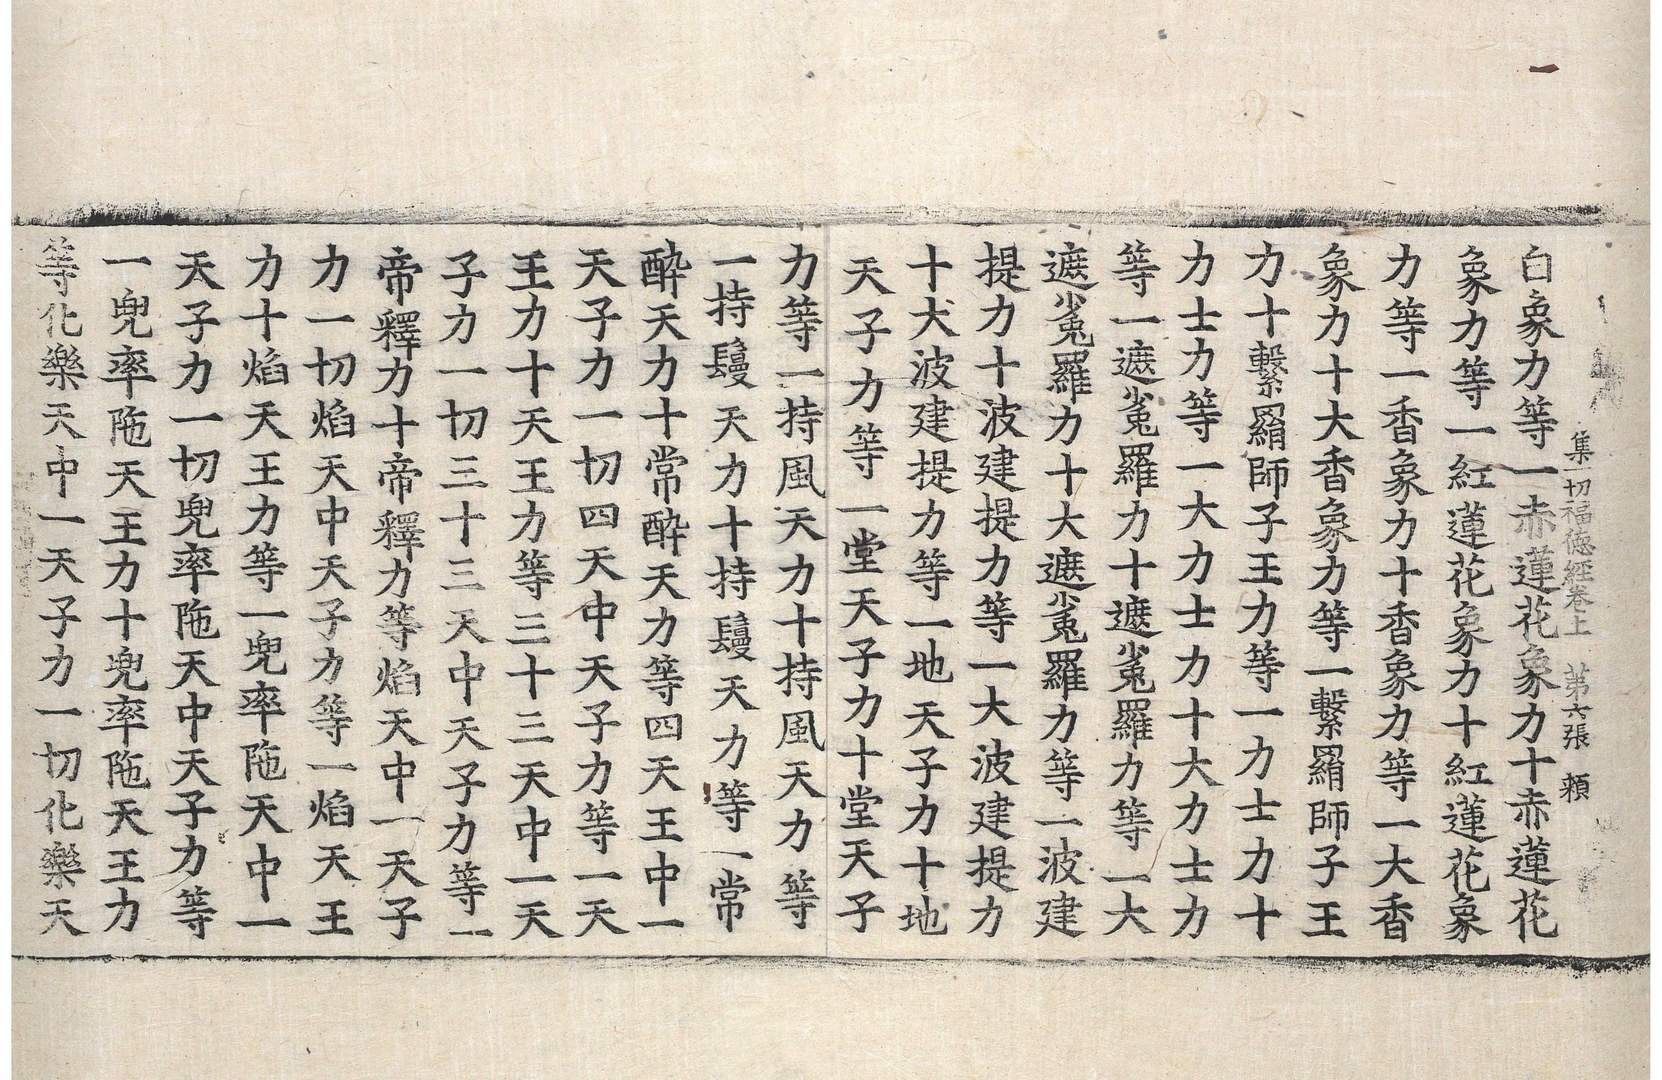 集一切福德經卷上 第六張 頼
白象力等一赤蓮花象力十赤蓮花
象力等一紅蓮花象力十紅蓮花象
力等一香象力十香象力等一大香
象力十大香象力等一繫羂師子王
力十繫羂師子王力等一力士力十
力士力等一大力士力十大力士力
等一遮㝹羅力十遮㝹羅力等一大
遮㝹羅力十大遮㝹羅力等一波建
提力十波建提力等一大波建提力
十大波建提力等一地天子力十地
天子力等一堂天子力十堂天子
力等一持風天力十持風天力等
一持鬘天力十持鬘天力等一常
醉天力十常醉天力等四天王中一
天子力一切四天中天子力等一天
王力十天王力等三十三天中一天
子力一切三十三天中天子力等一
帝釋力十帝釋力等焰天中一天子
力一切焰天中天子力等一焰天王
力十焰天王力等一兜率陁天中一
天子力一切兜率陁天中天子力等
一兜率陁天王力十兜率陁天王力
等化樂天中一天子力一切化樂天